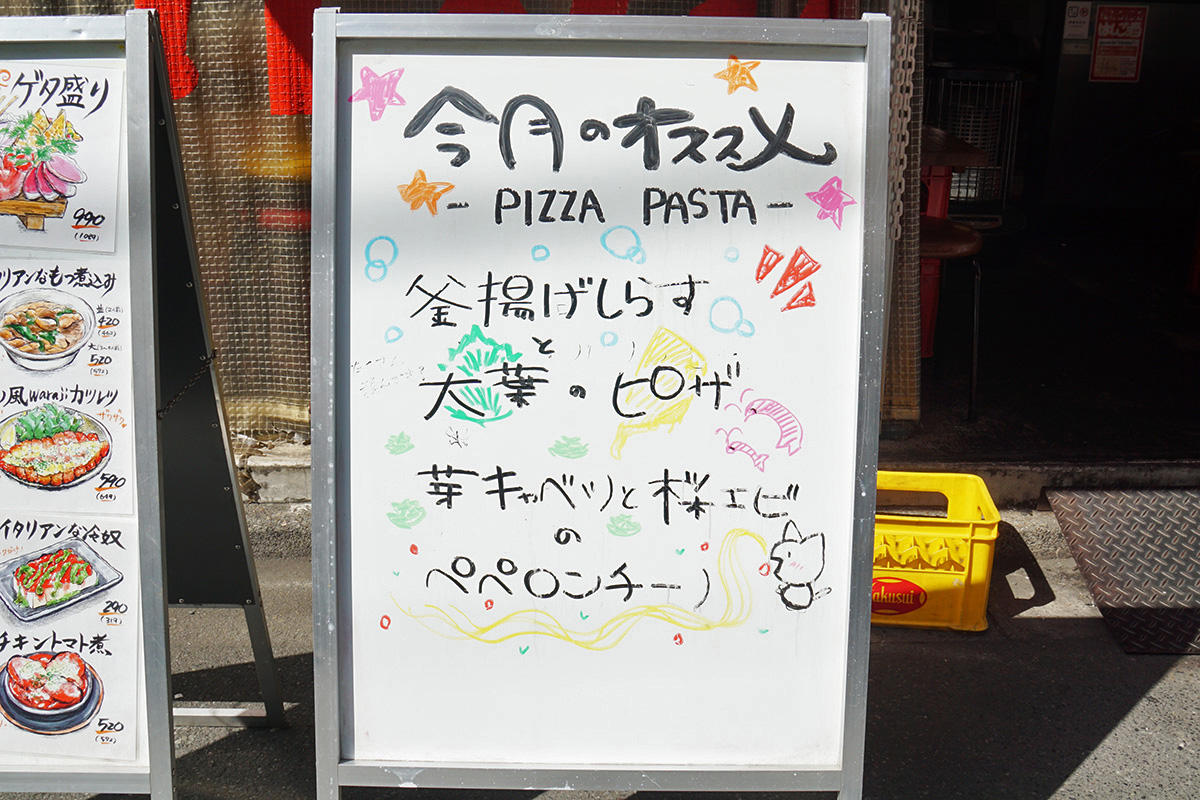 ゲタ盛り
990
(1089)
リアンなもつ煮込み
420
(462)
520
(572)
風warajiカツレツ
ザクザク
590
(649)
イタリアンな冷奴
290
(319)
チキントマト煮
520
(572)
今月のオススメ
- PIZZA PASTA -
釜揚げしらす
と
大葉のピザ
芽キャベツと桜エビ
の
ペペロンチーノ
akusui
はしご酒